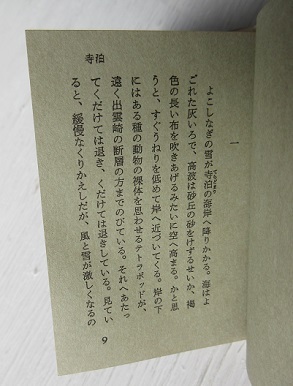 寺泊
一
よこしなぎの雪が寺泊の海岸へ降りかかる。海はよ
ごれた灰いろで、高波は砂丘の砂をけずるせいか、褐
色の長い布を吹きあげるみたいに空へ高まる。かと思
うと、すぐうねりを低めて岸へ近づいてくる。岸の下
にはある種の動物の裸体を思わせるテトラポッドが、
遠く出雲崎の断層の方までのびている。それへあたっ
てくだけては退き、くだけては退きしている。見てい
ると、緩慢なくりかえしだが、風と雪が激しくなるの
9